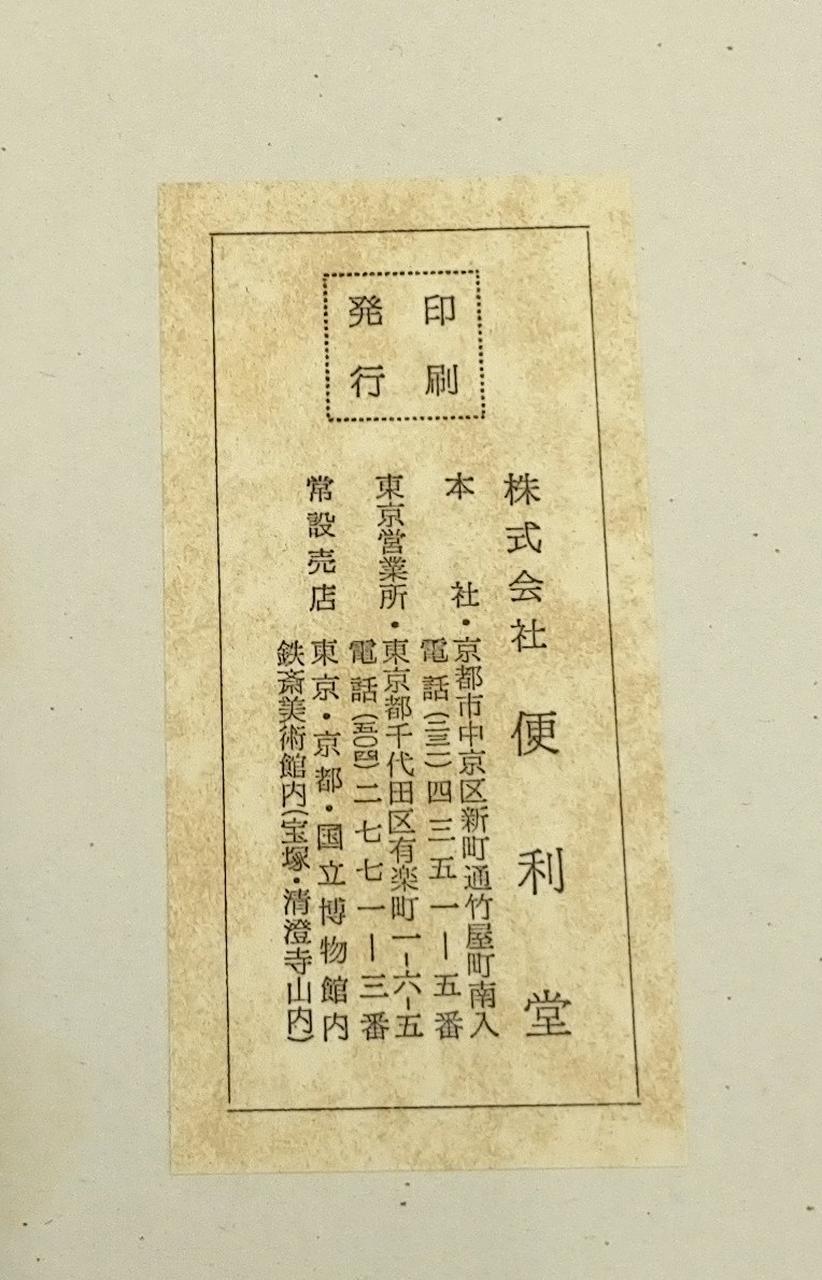 印刷
発行
株式会社 便利堂
本社・京都市中京区新町通竹屋町南入
電話(二三一)四三五一―五番
東京営業所・東京都千代田区有楽町一-六-五
電話(五〇四)二七七一―三番
常設売店 東京・京都・国立博物館内
鉄斎美術館内(宝塚・清澄寺山内)